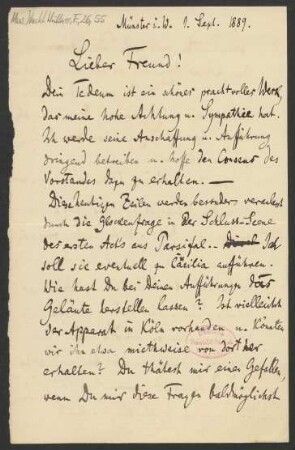 Mus. Nachl. Wüllner, F., 26, 55
Münster i. W. 1. Sept. 1889.
Lieber Freund!
Dein Tedeum ist ein schönes prachtvolles Werk,
das meine hohe Achtung u. Sympathie hat.
Ich werde seine Anschaffung u. Aufführung
dringend betreiben u. hoffe den Consens des
Vorstandes dazu zu erhalten. —
Die heutigen Zeilen werden besonders veranlaßt
durch die Glockenfrage in der Schluss-Scene
des ersten Acts aus Parsifal. Ich
soll sie eventuell zu Cäcilia aufführen.
Wie hast du bei Deinen Aufführungen das
Geläute herstellen lassen? Ist vielleicht
der Apparat in Köln vorhanden u. könnten
wir ihn etwa miethweise von dort her
erhalten? Du thätest mir einen Gefallen,
wenn Du mir diese Fragen baldmöglichst